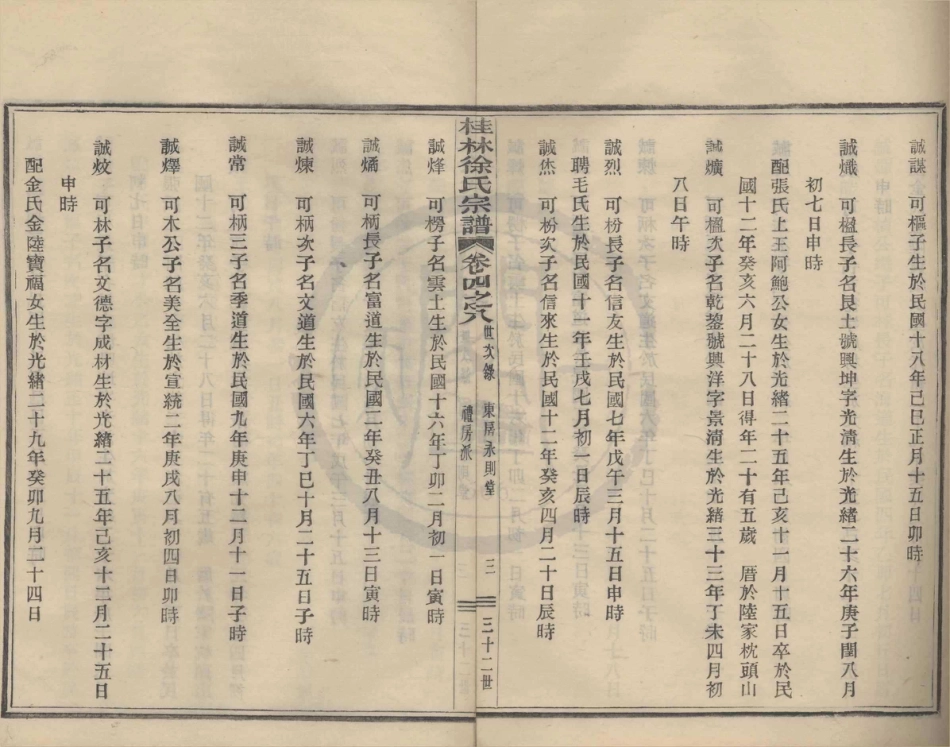 誠謀　可樞子生於民國十八年己巳正月十五日卯時
誠熾　可楹長子名艮土號興坤字光清生於光緒二十六年庚子閏八月
初七日申時
配張氏上王阿鮑公女生於光緒二十五年己亥十一月十五日卒於民
國十二年癸亥六月二十八日得年二十有五歲　厝於陸家枕頭山
誠爌　可楹次子名乾鋆號興洋字景清生於光緒三十三年丁未四月初
八日午時
誠烈　可枌長子名信友生於民國七年戊午三月十五日申時
聘毛氏生於民國十一年壬戌七月初一日辰時
誠烋　可枌次子名信來生於民國十二年癸亥四月二十日辰時
桂林徐氏宗譜　卷四之六　世次錄　東房永則堂　禮房派　三　三十二世
誠烽　可楞子名雲土生於民國十六年丁卯二月初一日寅時
誠燏　可柄長子名富道生於民國二年癸丑八月十三日寅時
誠煉　可柄次子名文道生於民國六年丁巳十月二十五日子時
誠常　可柄三子名季道生於民國九年庚申十二月十一日子時
誠燡　可木公子名美全生於宣統二年庚戌八月初四日卯時
誠炆　可林子名文德字成材生於光緒二十五年己亥十二月二十五日
申時
配金氏金陸寶福女生於光緒二十九年癸卯九月二十四日